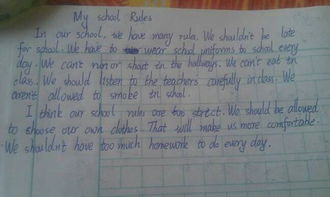 My school Rules
In our school, we have many rules. We shouldn't be late
for school. We have to wear school uniforms to school every
day. We can't run or shout in the hallways. We can't eat in
class. We should listen to the teachers carefully in class. We
aren't allowed to smoke in school.
I think our school rules are too strict. We should be allowed
to choose our own clothes. That will make us more comfortable.
We shouldn't have too much homework to do every day.